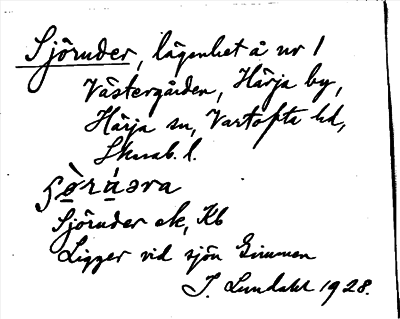 Sjöruder, lägenhet å nr 1
Västergården, Härja by,
Härja sn, Vartofta hd,
Skarab. l.
Sjöruder ek, Kb
Ligger vid sjön Gimmen
J. Lundahl 1928.